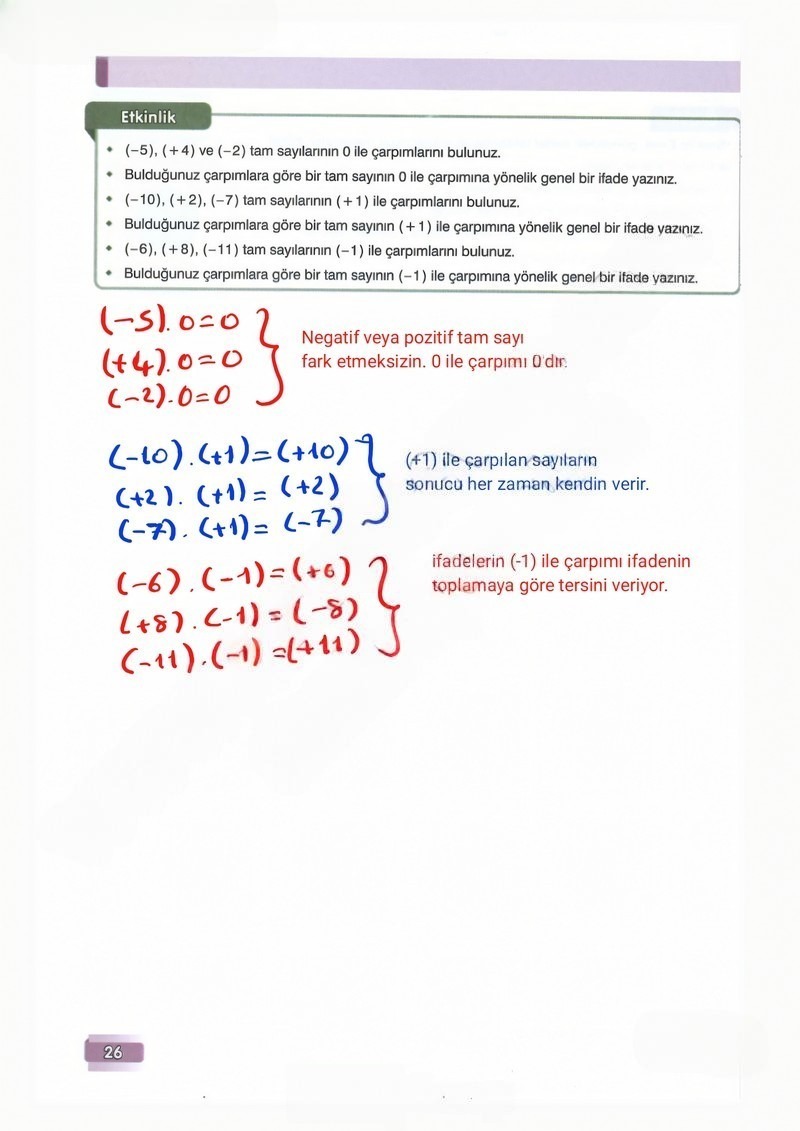 Etkinlik
• (−5), (+4) ve (−2) tam sayılarının 0 ile çarpımlarını bulunuz.
• Bulduğunuz çarpımlara göre bir tam sayının 0 ile çarpımına yönelik genel bir ifade yazınız.
• (−10), (+2), (−7) tam sayılarının (+1) ile çarpımlarını bulunuz.
• Bulduğunuz çarpımlara göre bir tam sayının (+1) ile çarpımına yönelik genel bir ifade yazınız.
• (−6), (+8), (−11) tam sayılarının (−1) ile çarpımlarını bulunuz.
• Bulduğunuz çarpımlara göre bir tam sayının (−1) ile çarpımına yönelik genel bir ifade yazınız.
(−5). 0=0
(+4). 0=0
(−2). 0=0
Negatif veya pozitif tam sayı
fark etmeksizin. 0 ile çarpımı 0'dır.
(−10). (+1)=(+10)
(+2). (+1)= (+2)
(−7). (+1)= (−7)
(+1) ile çarpılan sayıların
sonucu her zaman kendin verir.
(−6). (−1)=(+6)
(+8). (−1)= (−8)
(−11). (−1) =(+11)
ifadelerin (-1) ile çarpımı ifadenin
toplamaya göre tersini veriyor.
26